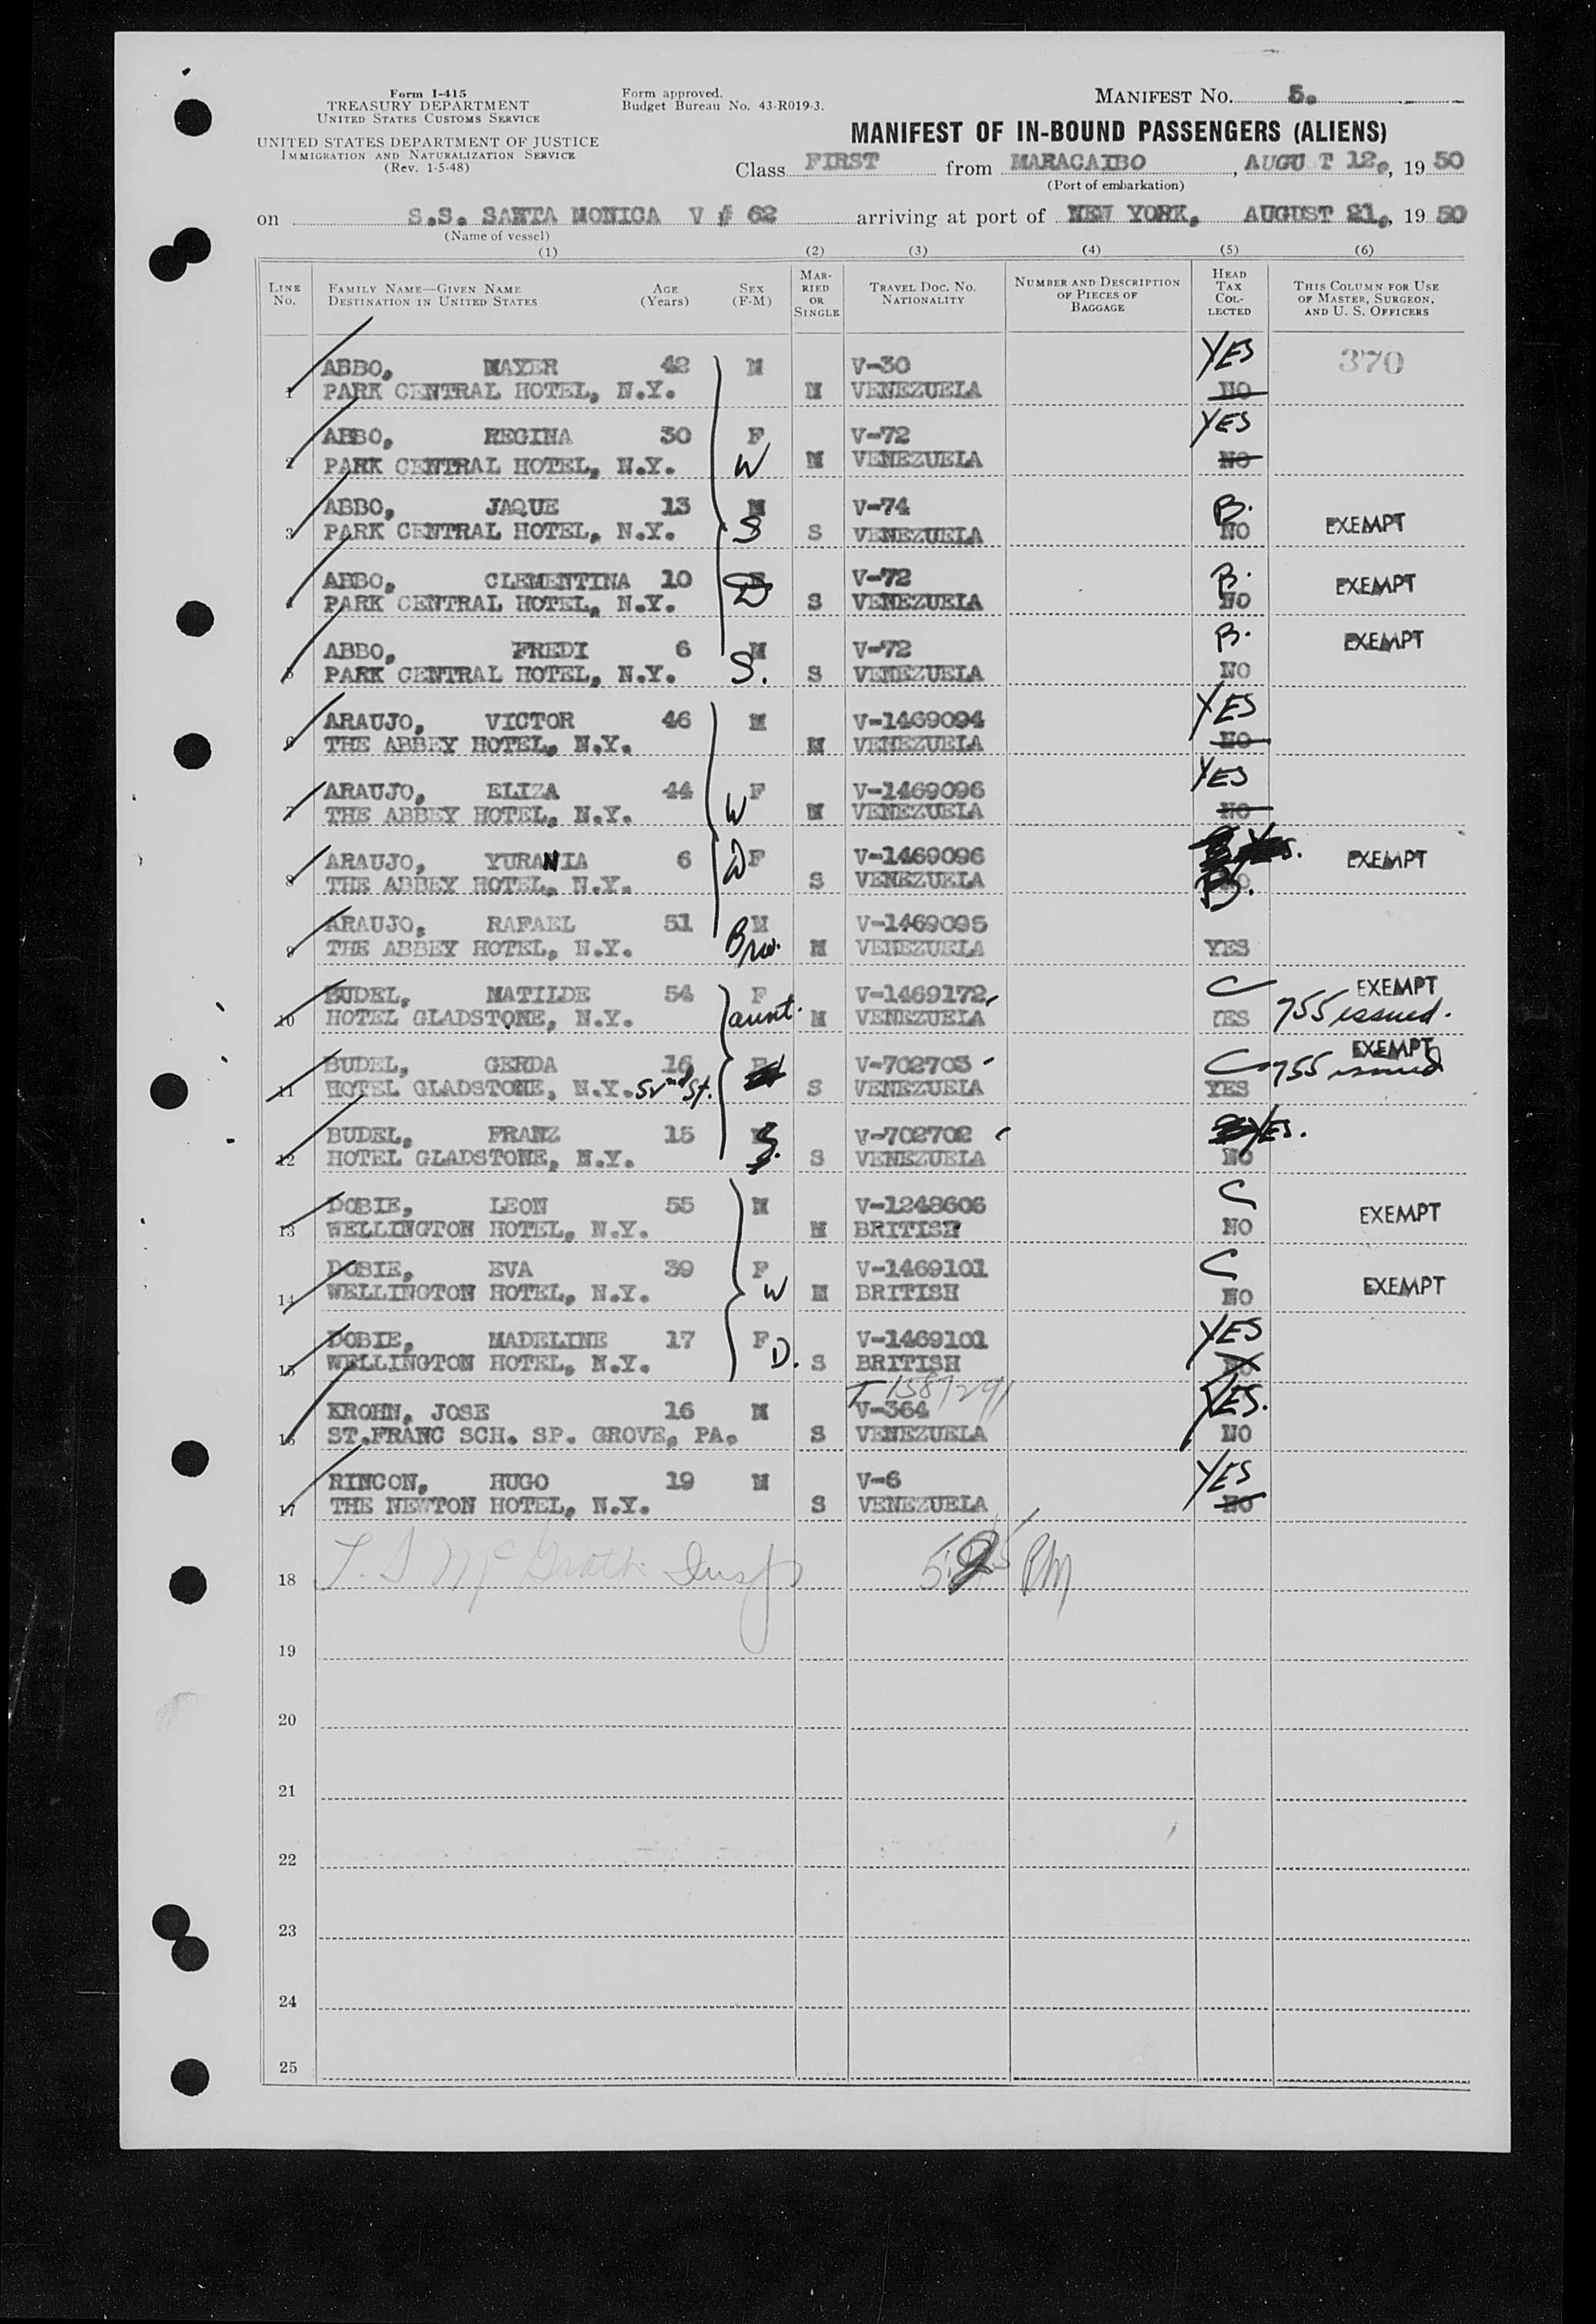 Form I-415
TREASURY DEPARTMENT
UNITED STATES CUSTOMS SERVICE
UNITED STATES DEPARTMENT OF JUSTICE
IMMIGRATION AND NATURALIZATION SERVICE
(Rev. 1-5-48)
Form approved.
Budget Bureau No. 43-R019-3.
MANIFEST NO. 5.
MANIFEST OF IN-BOUND PASSENGERS (ALIENS)
Class FIRST from MARACAIBO, AUGU T 12., 19 50
(Port of embarkation)
on S.S. SANTA MONICA V # 62 arriving at port of NEW YORK, AUGUST 21., 19 50
(Name of vessel)
(1) (2) (3) (4) (5) (6)
LINE No. FAMILY NAME—GIVEN NAME DESTINATION IN UNITED STATES AGE (Years) SEX (F-M) MARRIED OR SINGLE TRAVEL DOC. NO. NATIONALITY NUMBER AND DESCRIPTION OF PIECES OF BAGGAGE HEAD TAX COLLECTED THIS COLUMN FOR USE OF MASTER, SURGEON, AND U. S. OFFICERS
ABBO, MAYER 42 M V-30 YES 370
1 PARK CENTRAL HOTEL, N.Y. M VENEZUELA NO
ABBO, REGINA 30 F V-72 YES
2 PARK CENTRAL HOTEL, N.Y. W M VENEZUELA NO
ABBO, JAQUE 13 M V-74 B.
3 PARK CENTRAL HOTEL, N.Y. S S VENEZUELA NO EXEMPT
ABBO, CLEMENTINA 10 V-72 B. EXEMPT
4 PARK CENTRAL HOTEL, N.Y. D S VENEZUELA NO
ABBO, FREDI 6 M V-72 B. EXEMPT
5 PARK CENTRAL HOTEL, N.Y. S. S VENEZUELA NO
ARAUJO, VICTOR 46 M V-1469094 YES
6 THE ABBEY HOTEL, N.Y. M VENEZUELA NO
ARAUJO, ELIZA 44 F V-1469096 YES
7 THE ABBEY HOTEL, N.Y. W M VENEZUELA NO
ARAUJO, YURANIA 6 D F V-1469096 EXEMPT
8 THE ABBEY HOTEL, N.Y. S VENEZUELA B.
ARAUJO, RAFAEL 51 M V-1469095
9 THE ABBEY HOTEL, N.Y. Bro. M VENEZUELA YES
BUDEL, MATILDE 54 F V-1469172 C EXEMPT
10 HOTEL GLADSTONE, N.Y. aunt. M VENEZUELA YES 755 issued.
BUDEL, GERDA 16 V-702703 C EXEMPT
11 HOTEL GLADSTONE, N.Y. 52nd St. S VENEZUELA YES 755 issued
BUDEL, FRANZ 15 V-702702 YES.
12 HOTEL GLADSTONE, N.Y. S VENEZUELA NO
DOBIE, LEON 55 M V-1248606 C EXEMPT
13 WELLINGTON HOTEL, N.Y. M BRITISH NO
DOBIE, EVA 39 F V-1469101 C EXEMPT
14 WELLINGTON HOTEL, N.Y. W M BRITISH NO
DOBIE, MADELINE 17 F V-1469101 YES
15 WELLINGTON HOTEL, N.Y. D. S BRITISH NO
T 1587291
KROHN, JOSE 16 M V-364 YES.
16 ST.FRANC SCH. SP. GROVE, PA. S VENEZUELA NO
RINCON, HUGO 19 M V-6 YES
17 THE NEWTON HOTEL, N.Y. S VENEZUELA NO
18 T. S. McGrath Insp PM
19
20
21
22
23
24
25